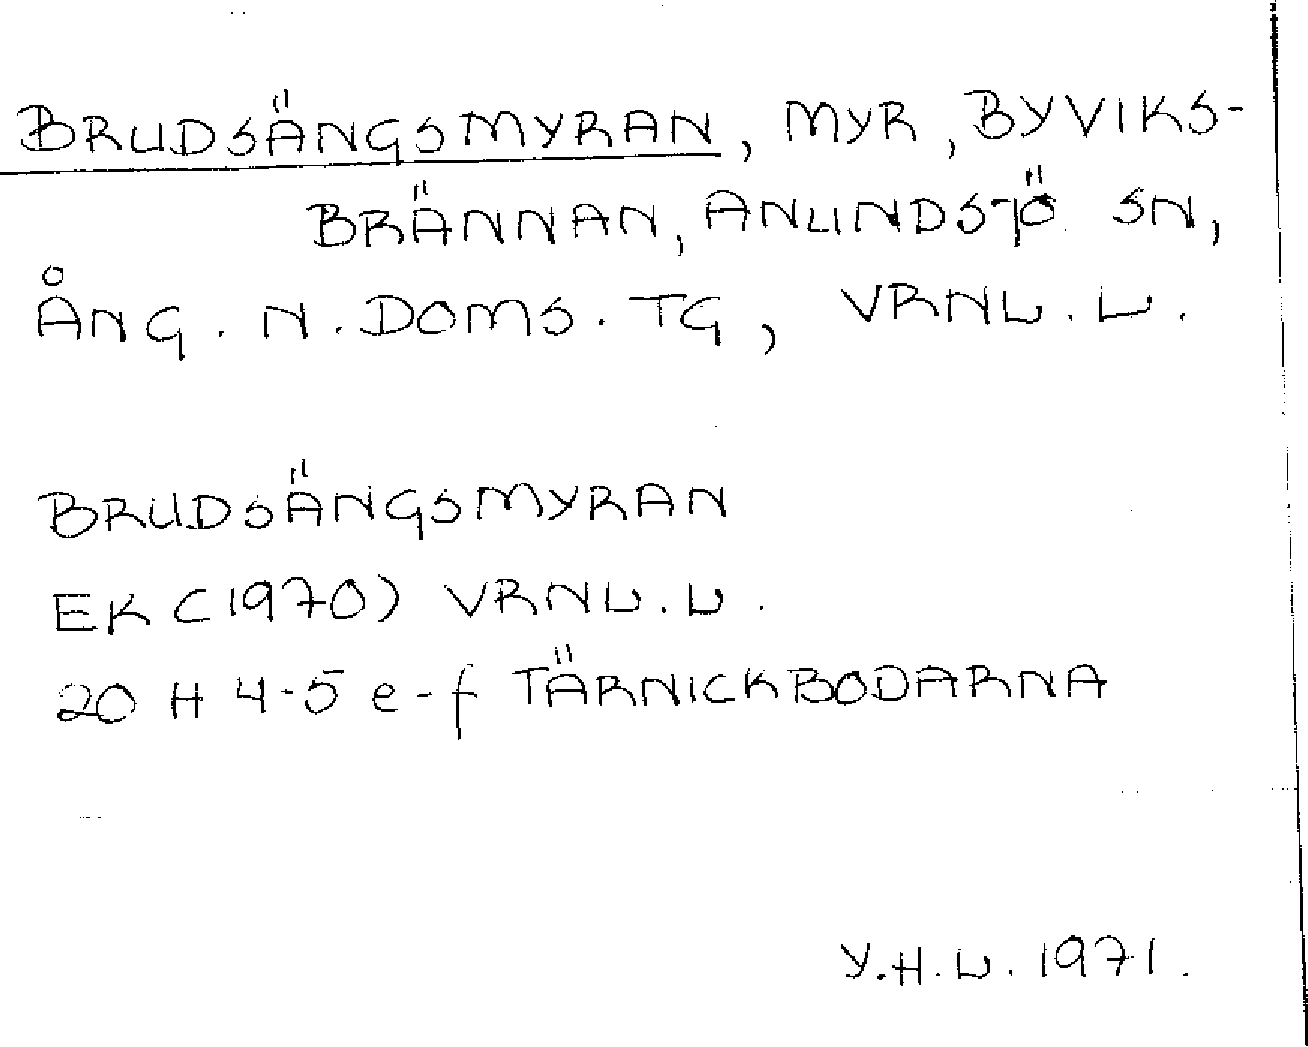 BRUDSÄNGSMYRAN, MYR, BYVIKS-
BRÄNNAN, ANUNDSJÖ SN,
ÅNG. N. DOMS. TG, VRNL. L.
BRUDSÄNGSMYRAN
EK (1970) VRNL. L.
20 H 4-5 e-f TÄRNICKBODARNA
Y.H.L. 1971.